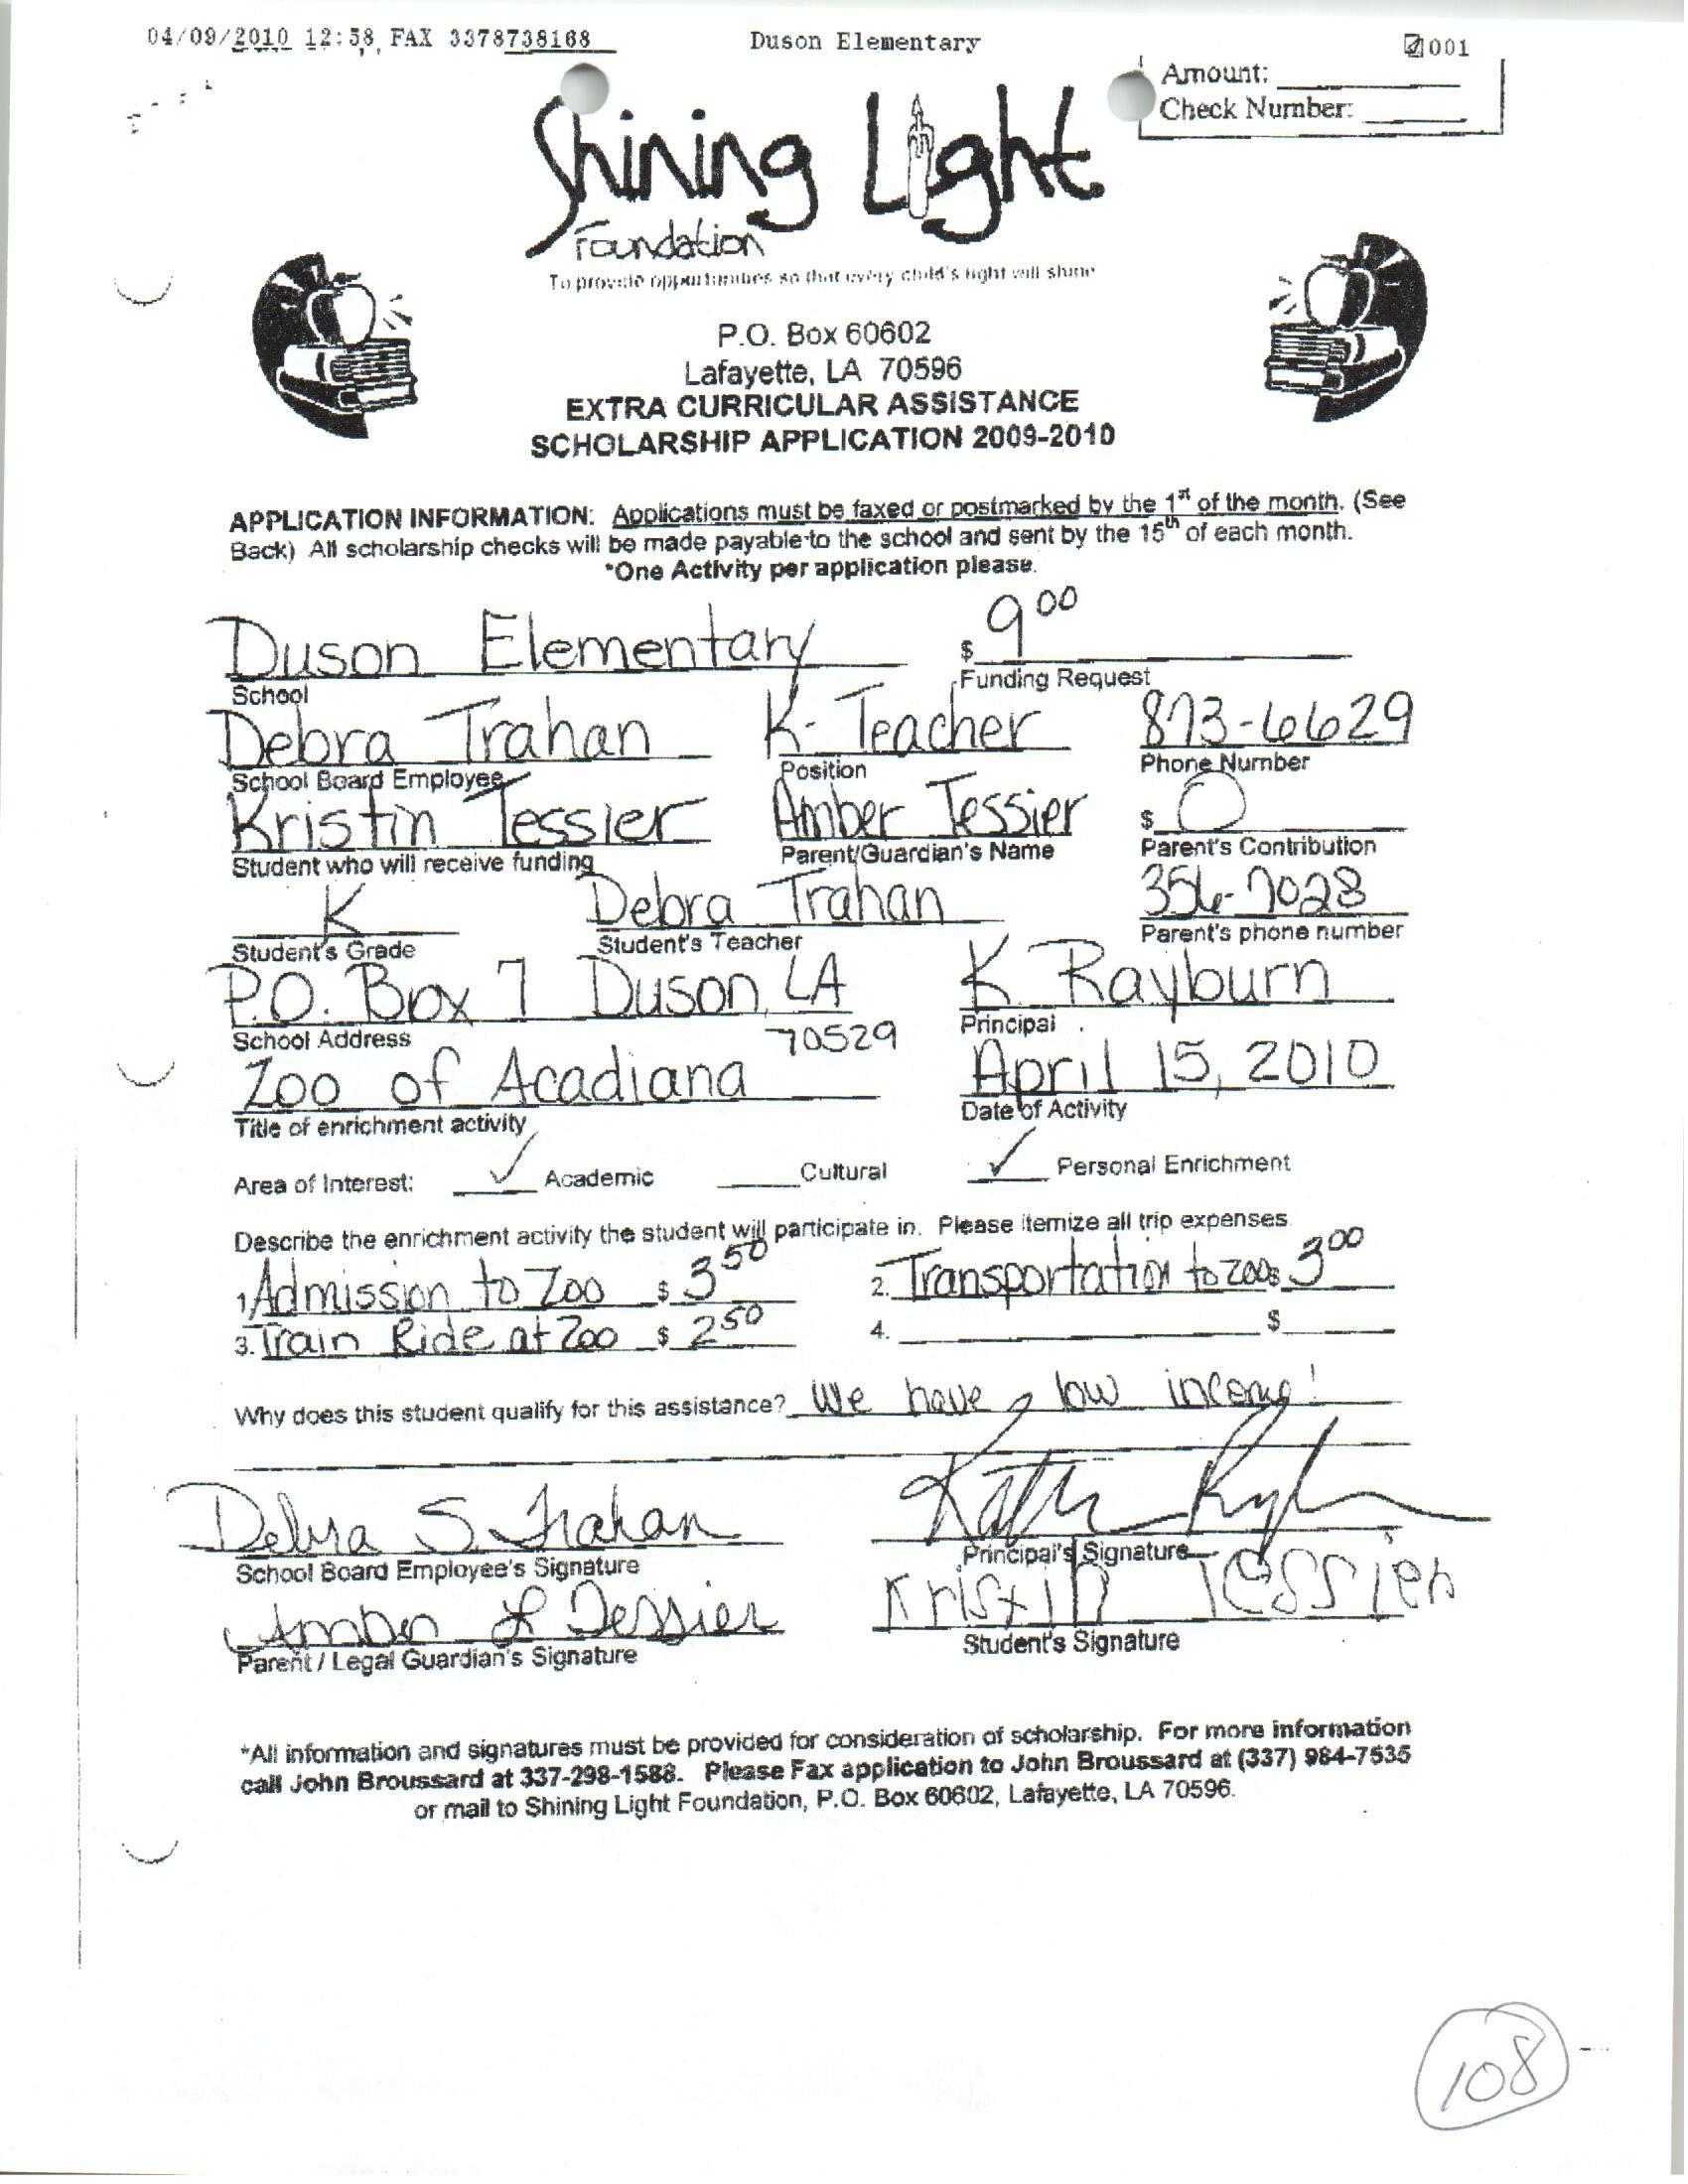 04/09/2010 12:58 FAX 3378738168 Duson Elementary 001
Amount:
Check Number:
Shining Light
Foundation
To provide opportunities so that every child's light will shine
P.O. Box 60602
Lafayette, LA 70596
EXTRA CURRICULAR ASSISTANCE
SCHOLARSHIP APPLICATION 2009-2010
APPLICATION INFORMATION: Applications must be faxed or postmarked by the 1st of the month. (See
Back) All scholarship checks will be made payable to the school and sent by the 15th of each month.
*One Activity per application please.
Duson Elementary $ 9 00
School Funding Request
Debra Trahan K-Teacher 873-6629
School Board Employee Position Phone Number
Kristin Tessier Amber Tessier $ 0
Student who will receive funding Parent/Guardian's Name Parent's Contribution
K Debra Trahan 356-7028
Student's Grade Student's Teacher Parent's phone number
P.O. Box 7 Duson, LA K. Rayburn
School Address 70529 Principal
Zoo of Acadiana April 15, 2010
Title of enrichment activity Date of Activity
Area of Interest: ✓ Academic Cultural ✓ Personal Enrichment
Describe the enrichment activity the student will participate in. Please itemize all trip expenses.
1. Admission to Zoo $ 3 50 2. Transportation to zoo $ 3 00
3. Train Ride at Zoo $ 2 50 4. $
Why does this student qualify for this assistance? We have low income!
Debra S. Trahan
School Board Employee's Signature Principal's Signature
Amber L Tessier Kristin Tessier
Parent / Legal Guardian's Signature Student's Signature
*All information and signatures must be provided for consideration of scholarship. For more information
call John Broussard at 337-298-1588. Please Fax application to John Broussard at (337) 984-7535
or mail to Shining Light Foundation, P.O. Box 60602, Lafayette, LA 70596.
108